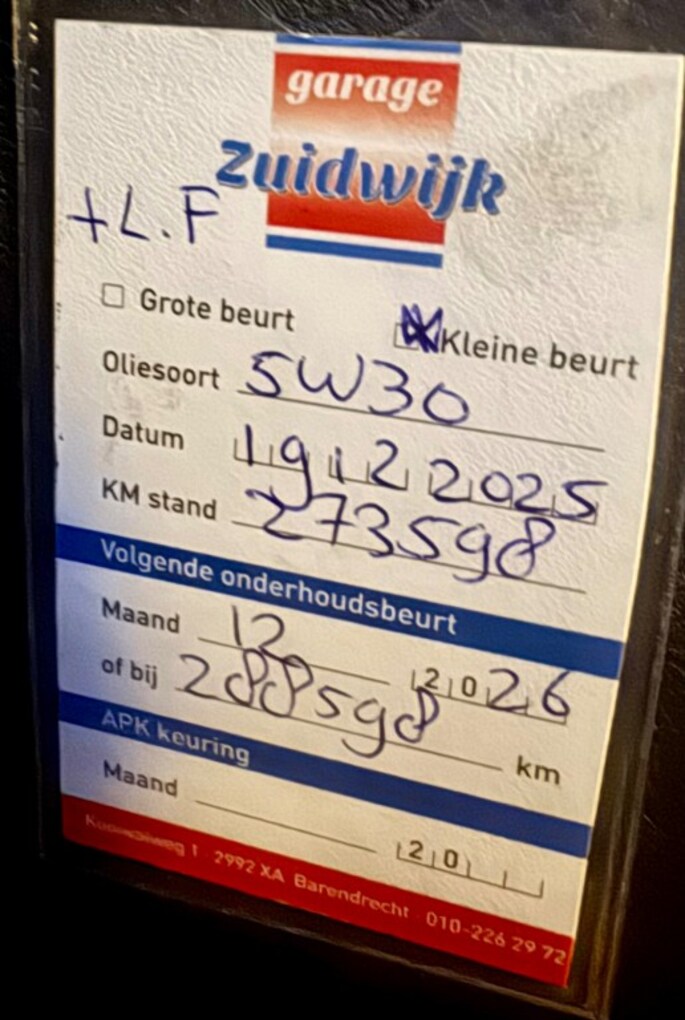 garage
Zuidwijk
+L.F
Grote beurt Kleine beurt
Oliesoort 5W30
Datum 19 12 2025
KM stand 273598
Volgende onderhoudsbeurt
Maand 12 2026
of bij 288598 km
APK keuring
Maand 20
1 2992 XA Barendrecht 010-226 29 72